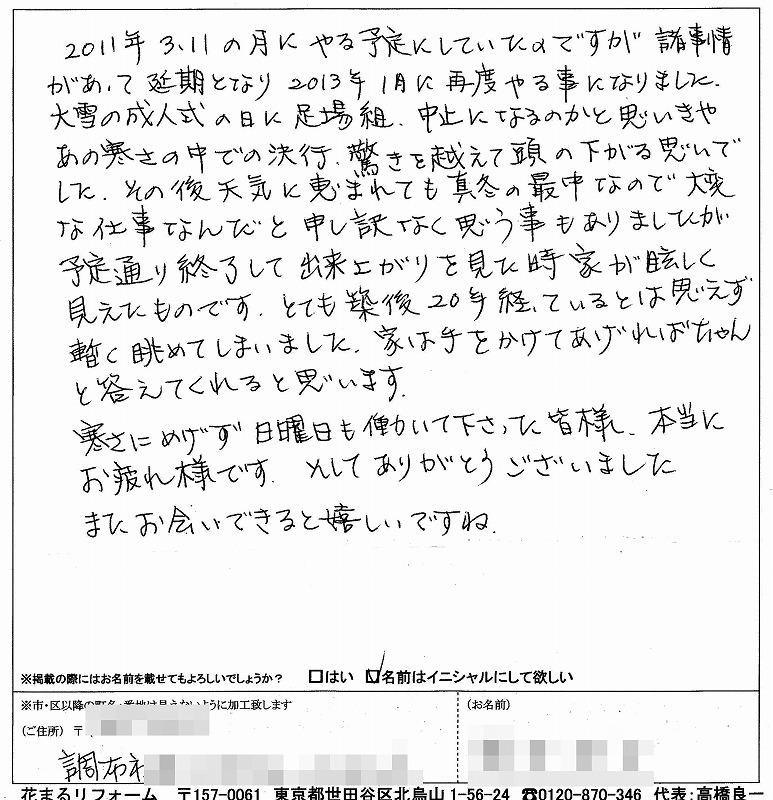 2011年 3.11の月に やる予定にしていたのですが 諸事情
があって 延期となり 2013年1月に 再度やる事になりました.
大雪の成人式の日に 足場組. 中止になるのかと思いきや
あの寒さの中での決行. 驚きを越えて頭の下がる思いで
した. その後天気に恵まれても真冬の最中なので 大変
な仕事なんだと 申し訳なく思う事もありましたが
予定通り終了して 出来上がりを見た時 家が眩しく
見えたものです. とても築後20年経っているとは思えず
暫く眺めてしまいました. 家は手をかけてあげればちゃん
と答えてくれると思います.
寒さにめげず 日曜日も働いて下さった皆様. 本当に
お疲れ様です. そして ありがとうございました
またお会いできると嬉しいですね.
※掲載の際にはお名前を載せてもよろしいでしょうか? □はい ☑名前はイニシャルにして欲しい
※市・区以降の町名・番地は見えないように加工致します
(お名前)
(ご住所) 〒
調布市
花まるリフォーム 〒157-0061 東京都世田谷区北烏山1-56-24 ☎0120-870-346 代表:高橋良一